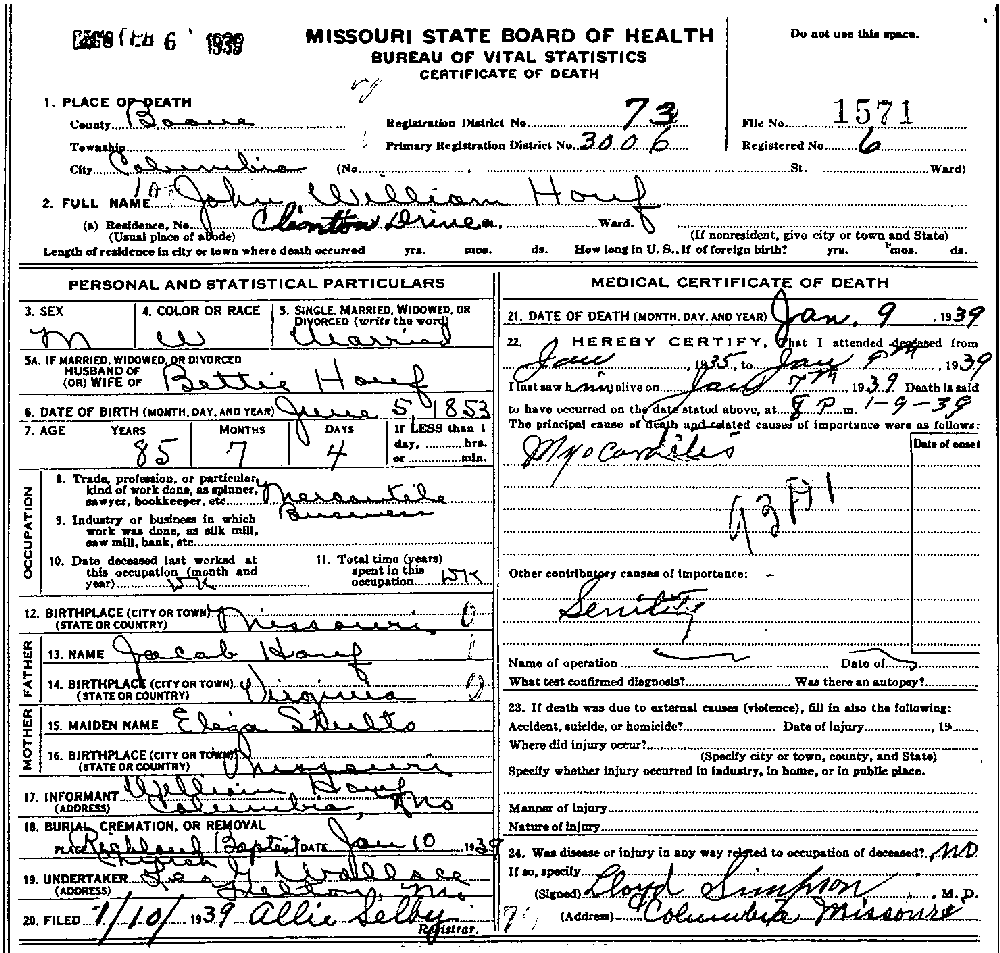 FEB 6 1939
MISSOURI STATE BOARD OF HEALTH
BUREAU OF VITAL STATISTICS
CERTIFICATE OF DEATH
Do not use this space.
1. PLACE OF DEATH
County Boone
Registration District No. 73
File No. 1571
Township
Primary Registration District No. 3006
Registered No. 6
City Columbia (No. St. Ward)
2. FULL NAME John William Houf
(a) Residence, No. Ward.
(Usual place of abode) (If nonresident, give city or town and State)
Length of residence in city or town where death occurred yrs. mos. ds. How long in U. S., if of foreign birth? yrs. mos. ds.
PERSONAL AND STATISTICAL PARTICULARS
3. SEX 4. COLOR OR RACE 5. SINGLE, MARRIED, WIDOWED, OR
DIVORCED (write the word)
M W Married
5A. IF MARRIED, WIDOWED, OR DIVORCED
HUSBAND OF
(OR) WIFE OF Bettie Houf
6. DATE OF BIRTH (MONTH, DAY, AND YEAR) June 5, 1853
7. AGE YEARS MONTHS DAYS If LESS than 1
day, hrs.
or min.
85 7 4
OCCUPATION
8. Trade, profession, or particular
kind of work done, as spinner,
sawyer, bookkeeper, etc. Mercantile
Business
9. Industry or business in which
work was done, as silk mill,
saw mill, bank, etc.
10. Date deceased last worked at
this occupation (month and
year) DK
11. Total time (years)
spent in this
occupation DK
12. BIRTHPLACE (CITY OR TOWN)
(STATE OR COUNTRY) Missouri 0
FATHER
13. NAME Jacob Houf
14. BIRTHPLACE (CITY OR TOWN)
(STATE OR COUNTRY) Virginia
MOTHER
15. MAIDEN NAME Eliza Stults
16. BIRTHPLACE (CITY OR TOWN)
(STATE OR COUNTRY) Missouri
17. INFORMANT William Houf
(ADDRESS) Columbia, Mo
18. BURIAL, CREMATION, OR REMOVAL
PLACE Richland Baptist DATE Jan 10 1939
Church
19. UNDERTAKER Wallace
(ADDRESS) Mo.
20. FILED 1/10/ 1939 Allie Selby
Registrar.
MEDICAL CERTIFICATE OF DEATH
21. DATE OF DEATH (MONTH, DAY, AND YEAR) Jan. 9, 1939
22. I HEREBY CERTIFY, That I attended deceased from
Jan, 1935, to Jan 1939
I last saw him alive on Jan 7th 1939 Death is said
to have occurred on the date stated above, at 8 P m. 1-9-39
The principal cause of death and related causes of importance were as follows:
Date of onset
Myocarditis
93A1
Other contributory causes of importance:
Senility
Name of operation Date of
What test confirmed diagnosis? Was there an autopsy?
23. If death was due to external causes (violence), fill in also the following:
Accident, suicide, or homicide? Date of injury , 19
Where did injury occur?
(Specify city or town, county, and State)
Specify whether injury occurred in industry, in home, or in public place.
Manner of injury
Nature of injury
24. Was disease or injury in any way related to occupation of deceased? no
If so, specify
(Signed) Lloyd Simpson M. D.
(Address) Columbia Missouri